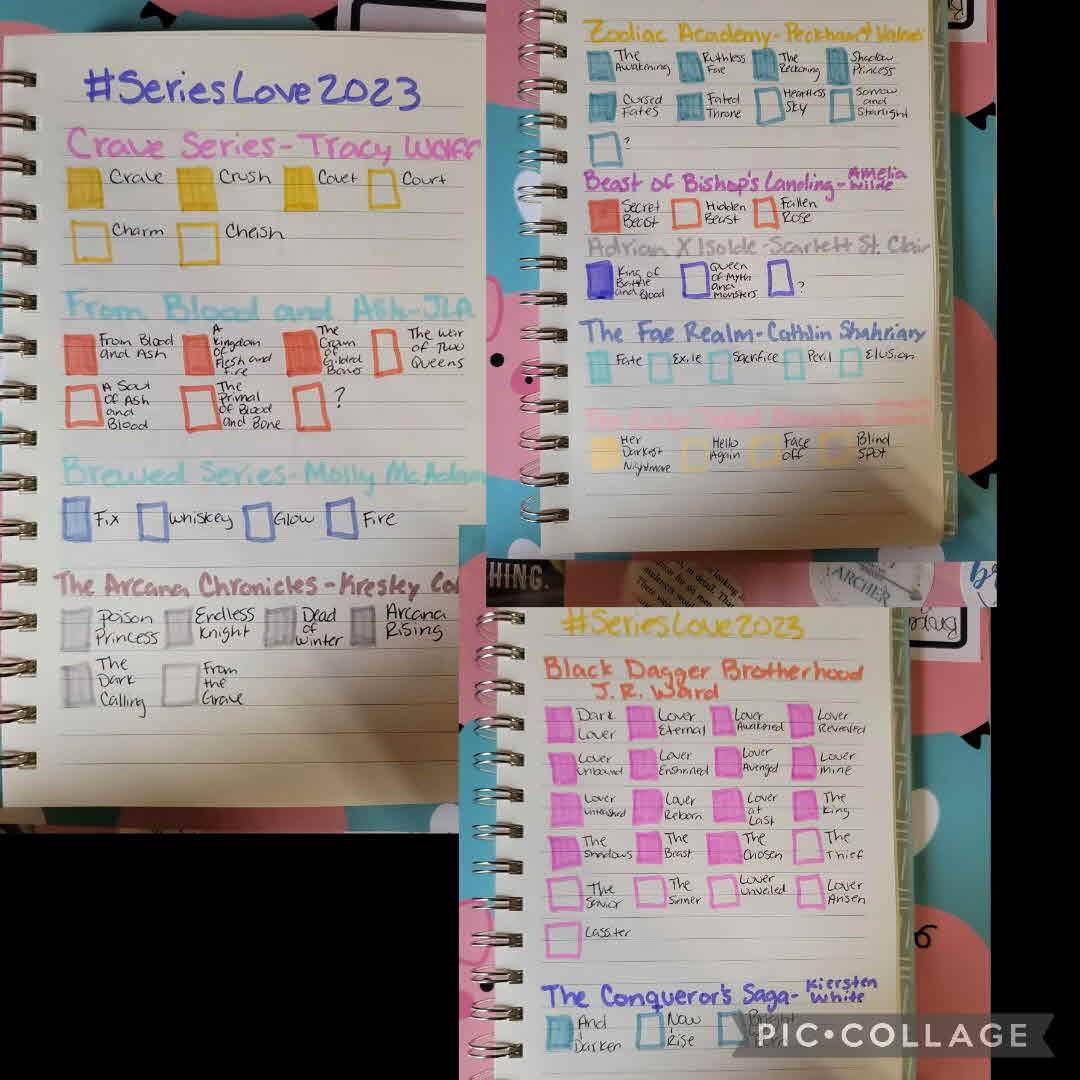 #SeriesLove2023
Crave Series-Tracy Wolff
Crave Crush Covet Court
Charm Cheish
From Blood and Ash-JLA
From Blood and Ash
A Kingdom of Flesh and Fire
The Crown of Gilded Bones
The War of Two Queens
A Soul of Ash and Blood
The Primal of Blood and Bone
?
Brewed Series-Molly McAdam
Fix Whiskey Glow Fire
The Arcana Chronicles-Kresley Col
Poison Princess
Endless Knight
Dead of Winter
Arcana Rising
The Dark Calling
From the Grave
Zodiac Academy-Peckham & Valenti
The Awakening
Ruthless Fae
The Reckoning
Shadow Princess
Cursed Fates
Fated Throne
Heartless Sky
Sorrow and Starlight
?
Beast of Bishop's Landing-Amelia Wilde
Secret Beast
Hidden Beast
Fallen Rose
Adrian X Isolde-Scarlett St. Clair
King of Battle and Blood
Queen of Myth and Monsters
?
The Fae Realm-Cathlin Shahriary
Fate Exile Sacrifice Peril Elusion
Her Darkest Nightmare
Hello Again
Face Off
Blind Spot
HING.
ARCHER
#SeriesLove2023
Black Dagger Brotherhood
J.R. Ward
Dark Lover
Lover Eternal
Lover Awakened
Lover Revealed
Lover Unbound
Lover Enshrined
Lover Avenged
Lover Mine
Lover Unleashed
Lover Reborn
Lover at Last
The King
The Shadows
The Beast
The Chosen
The Thief
The Savior
The Sinner
Lover Unveiled
Lover Arisen
Lassiter
The Conqueror's Saga-Kiersten White
And I Darken
Now I Rise
Bright
PIC•COLLAGE